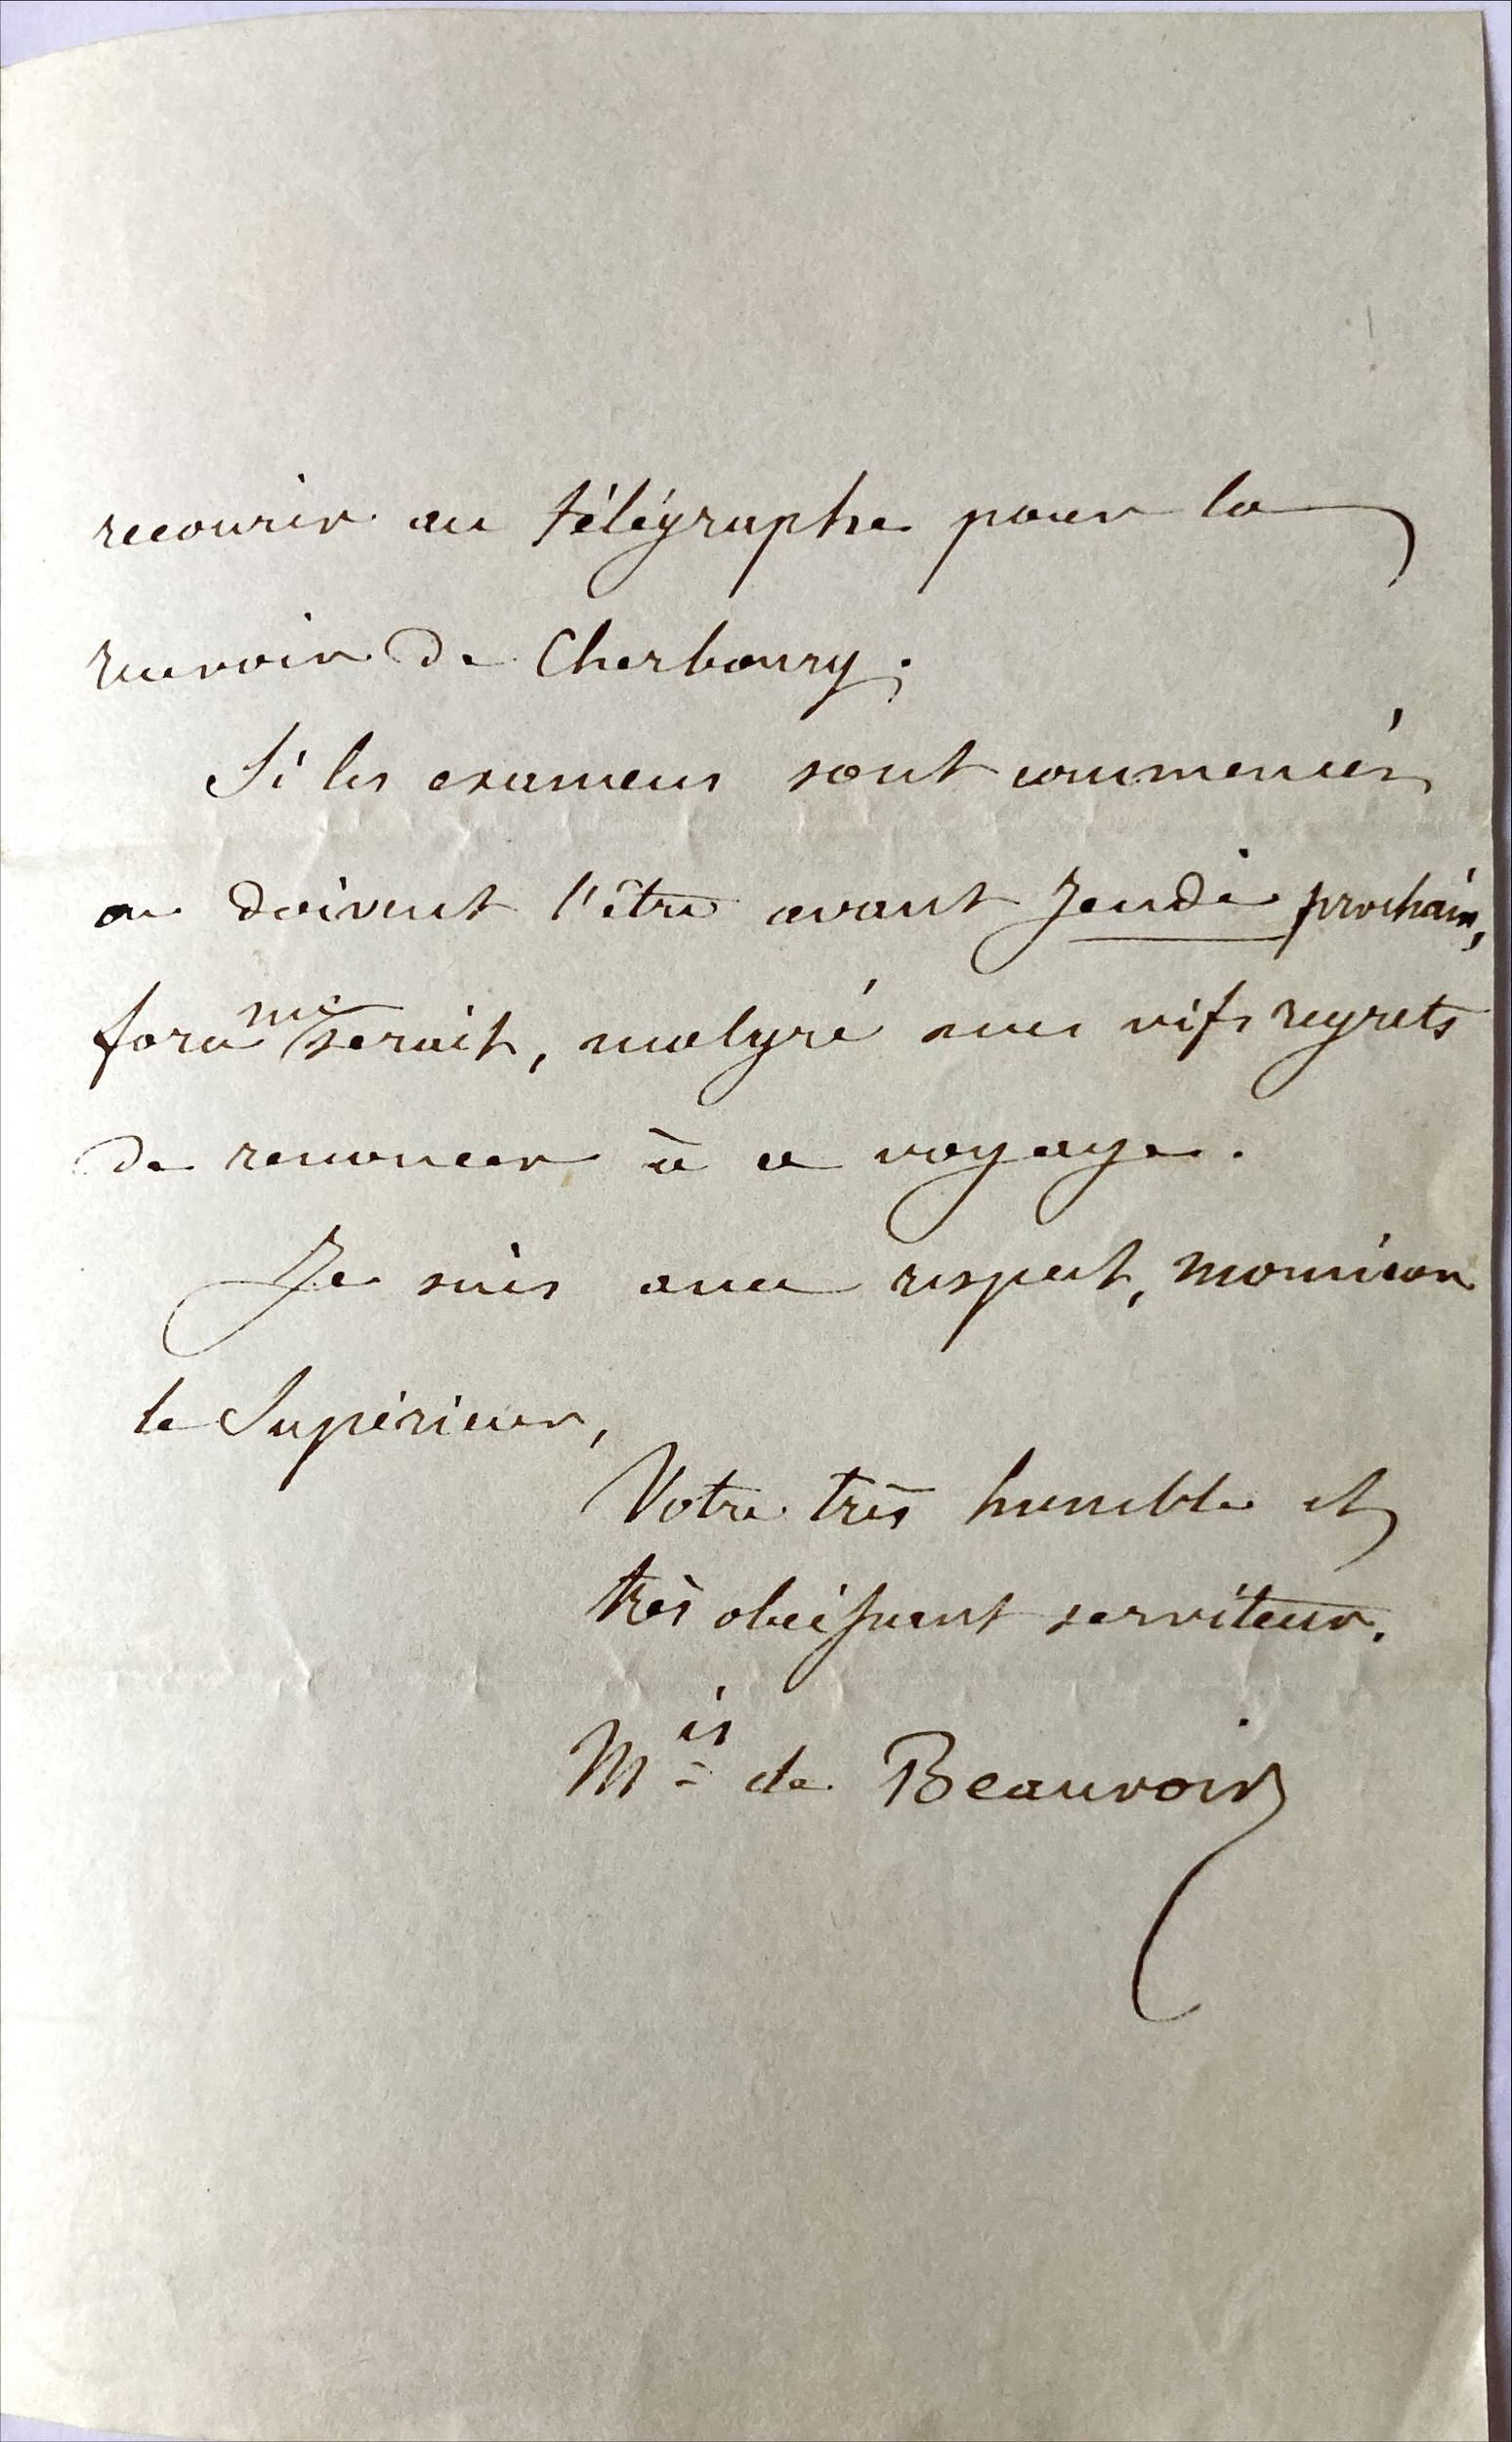 recourir au télégraphe pour la
recevoir de Cherbourg ;
Si les examens sont commencés
ou doivent l'être avant Jeudi prochain,
force me serait, malgré mes vifs regrets
de renoncer à ce voyage.
Je suis avec respect, Monsieur
le Supérieur,
Votre très humble et
très obéissant serviteur.
Mis de Beauvoir